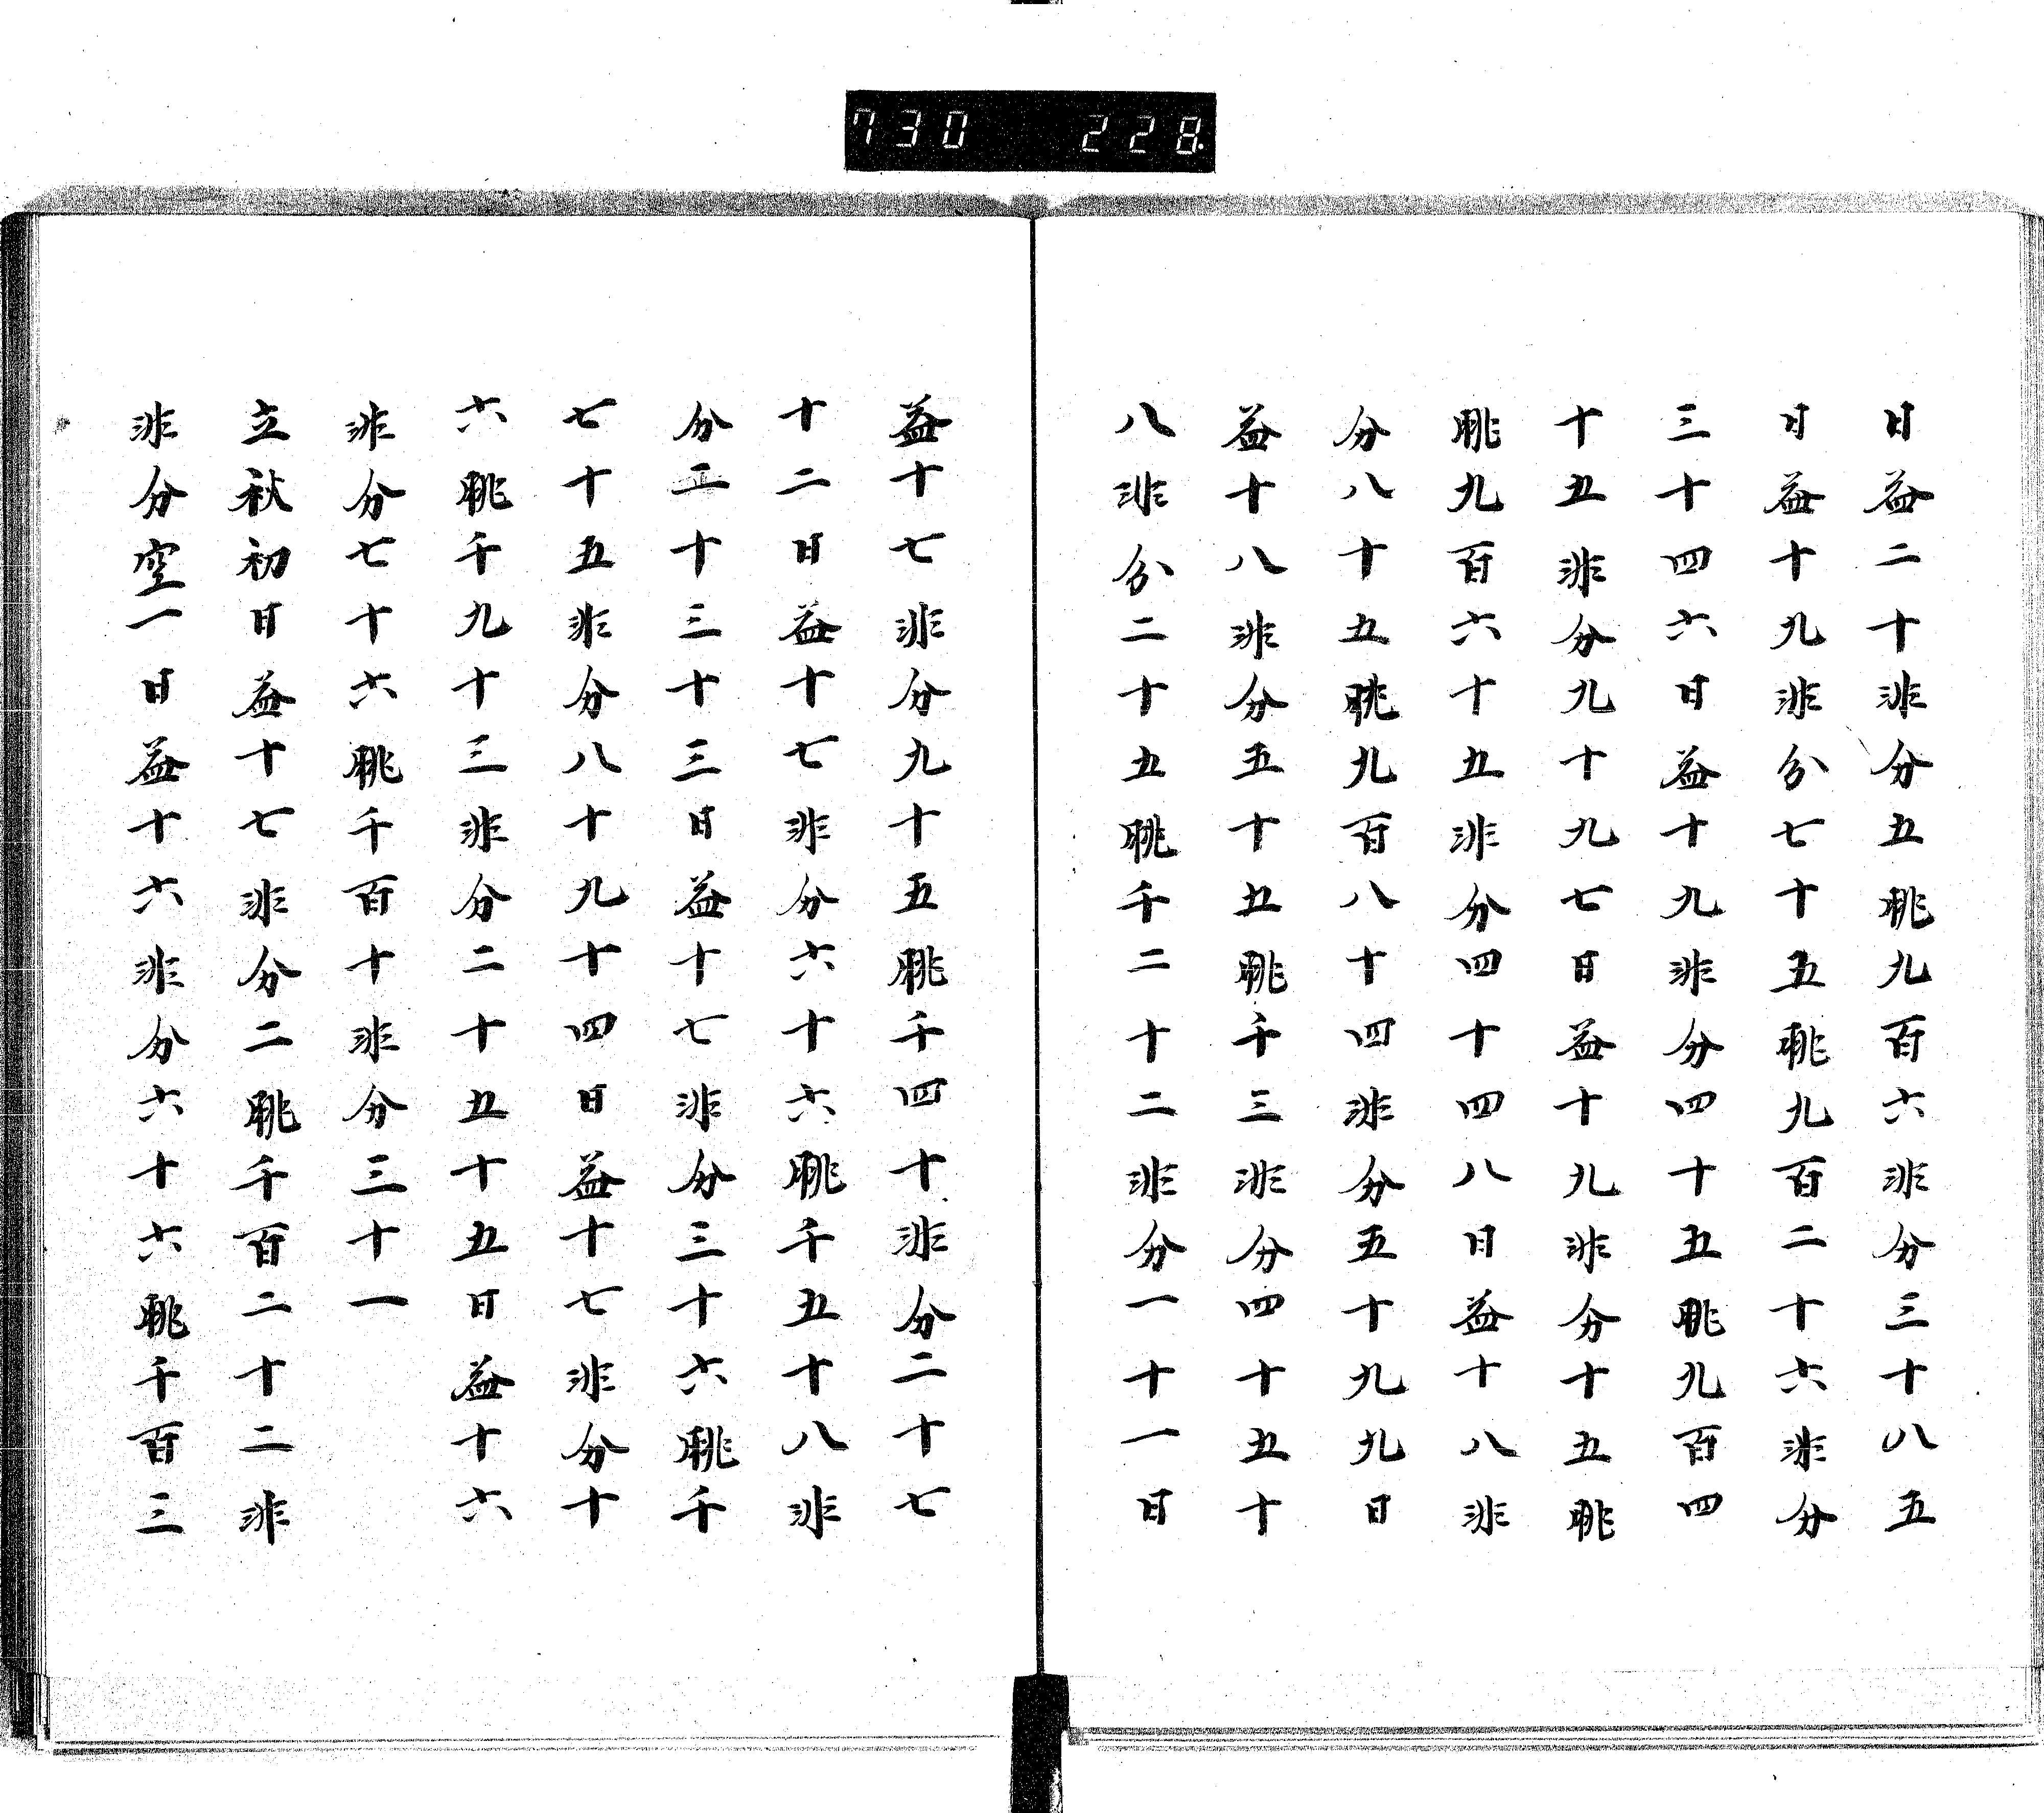 730 228
日益二十非分五朓九百六非分三十八五
日益十九非分七十五朓九百二十六非分
三十四六日益十九非分四十五朓九百四
十五非分九十九七日益十九非分十五朓
朓九百六十五非分四十四八日益十八非
分八十五朓九百八十四非分五十九九日
益十八非分五十五朓千三非分四十五十
八非分二十五朓千二十二非分一十一日
益十七非分九十五朓千四十非分二十七
十二日益十七非分六十六朓千五十八非
分正十三十三日益十七非分三十六朓千
七十五非分八十九十四日益十七非分十
六朓千九十三非分二十五十五日益十六
非分七十六朓千百十非分三十一
立秋初日益十七非分二朓千百二十二非
非分空一日益十六非分六十六朓千百三